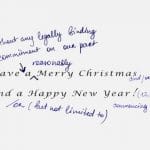 without any legally binding
commitment on our part
reasonably
Have a ^ Merry Christmas
and/or
and a Happy New Year!
or (but not limited to)
commencing